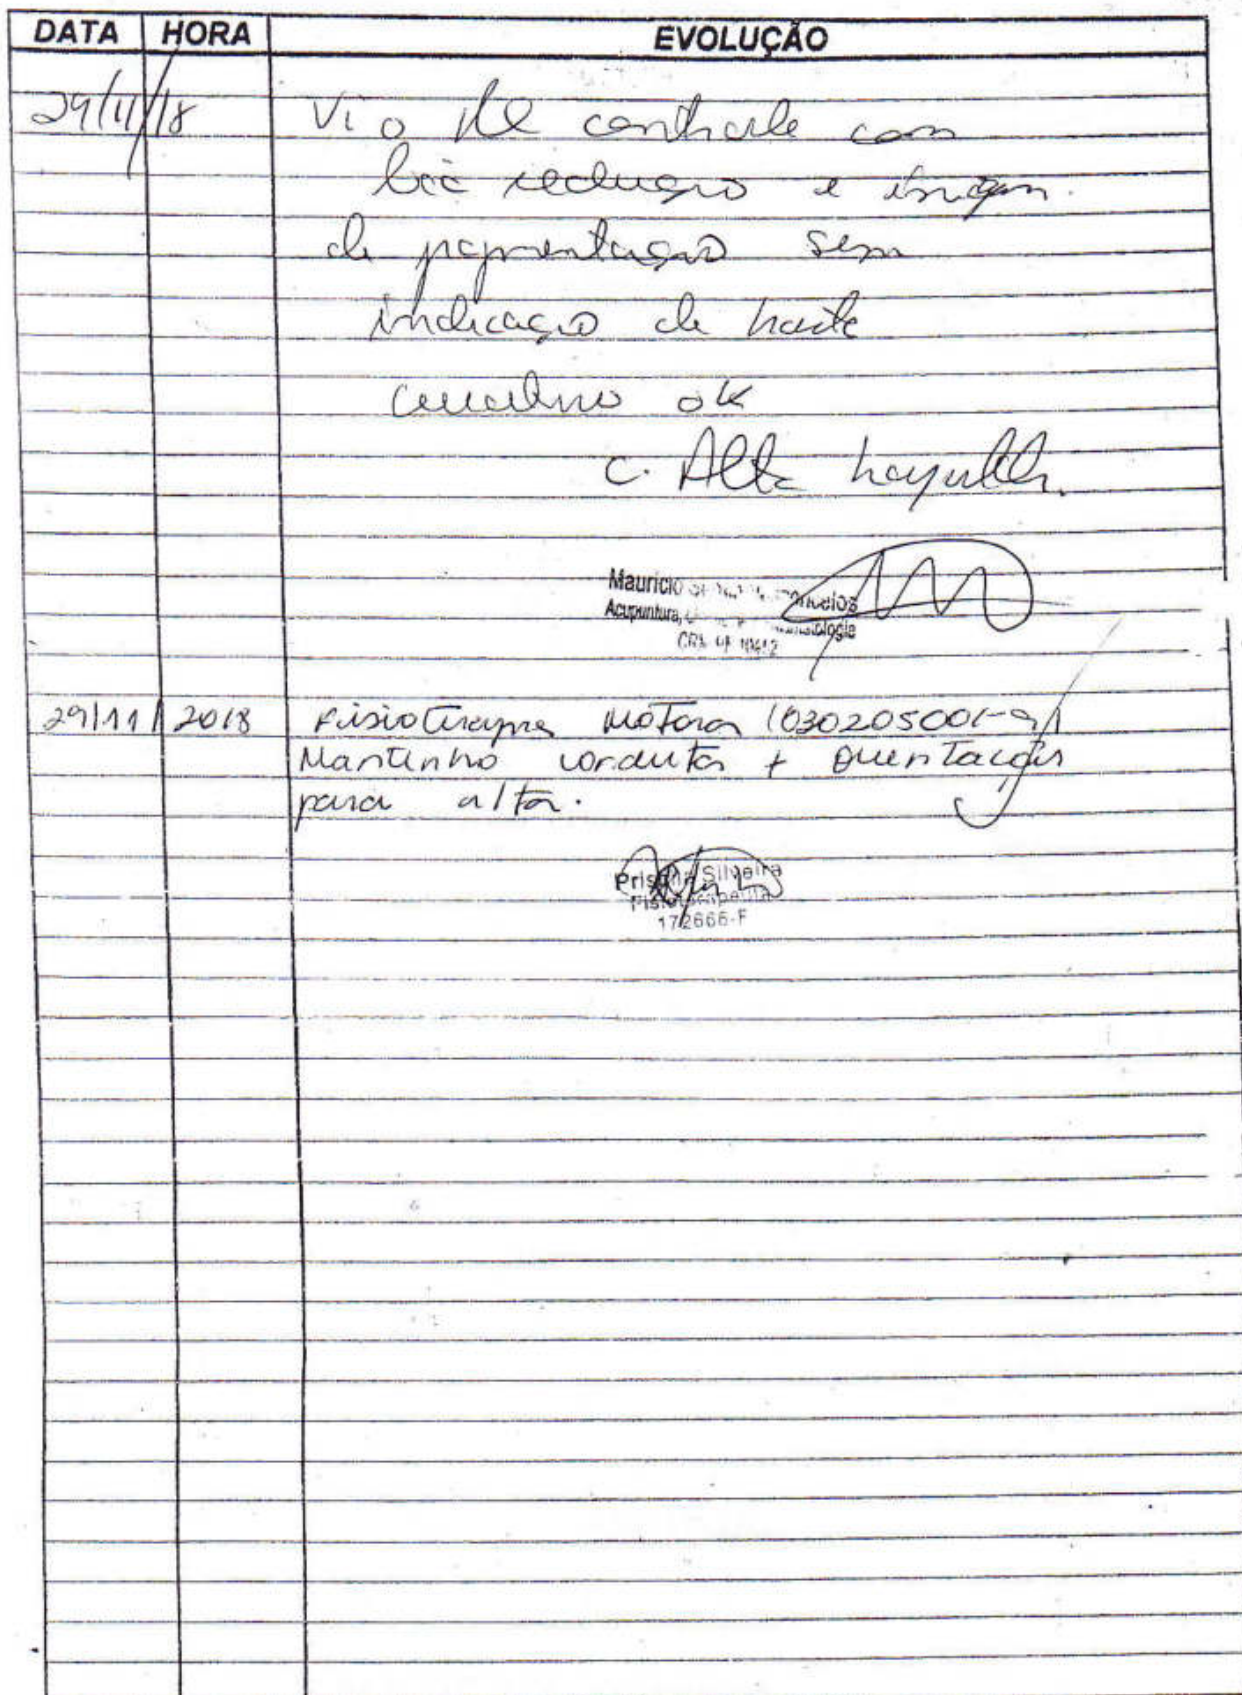 DATA HORA EVOLUÇÃO
29/11/18 Vi o RX controle com
boa redução e imagem
de fragmentação sem
indicação de haste
curativo ok
C. Alta hospitalar.
Mauricio
Acupuntura,
29/11/ 2018 Fisioterapia Motora (0302050019)
Mantenho conduta + orientações
para alta.
Priscila Silveira
Fisioterapeuta
172666-F